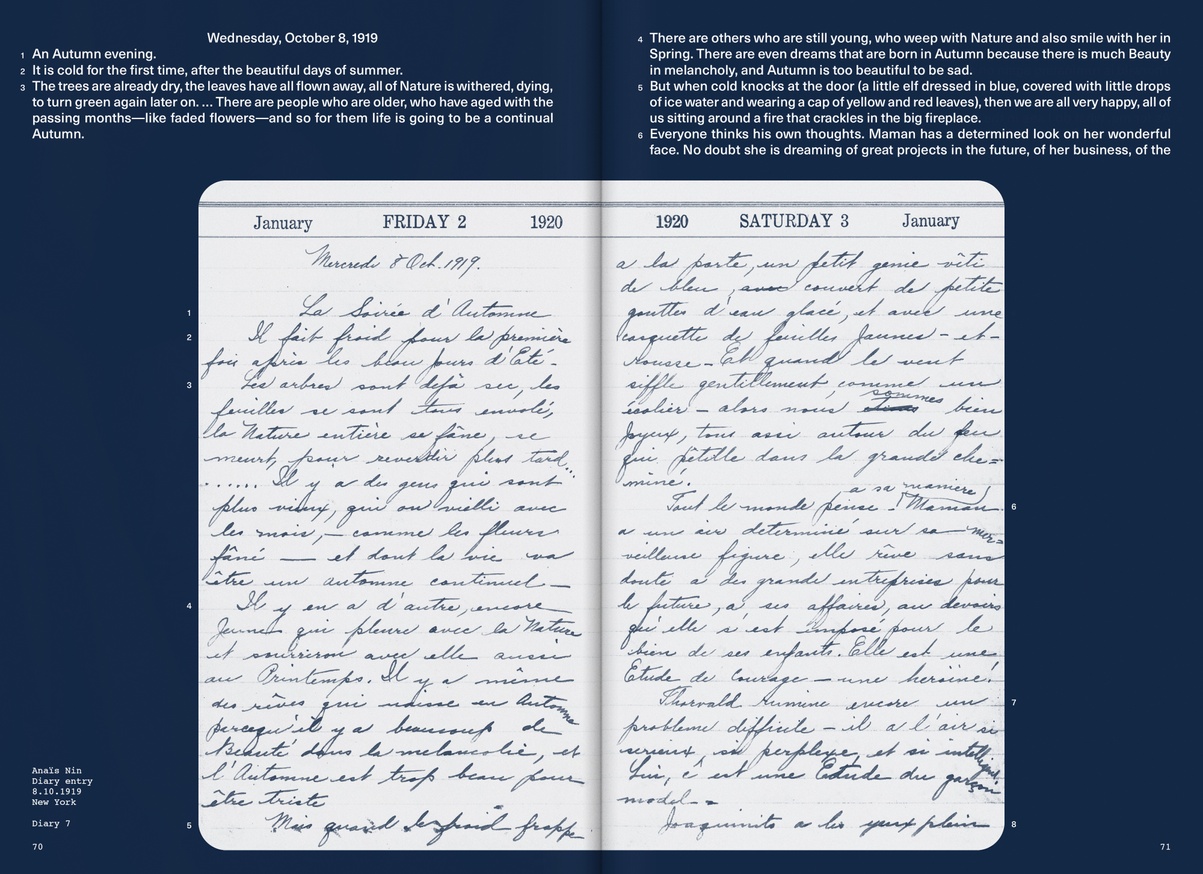 Wednesday, October 8, 1919
1 An Autumn evening.
2 It is cold for the first time, after the beautiful days of summer.
3 The trees are already dry, the leaves have all flown away, all of Nature is withered, dying,
to turn green again later on. ... There are people who are older, who have aged with the
passing months—like faded flowers—and so for them life is going to be a continual
Autumn.
4 There are others who are still young, who weep with Nature and also smile with her in
Spring. There are even dreams that are born in Autumn because there is much Beauty
in melancholy, and Autumn is too beautiful to be sad.
5 But when cold knocks at the door (a little elf dressed in blue, covered with little drops
of ice water and wearing a cap of yellow and red leaves), then we are all very happy, all of
us sitting around a fire that crackles in the big fireplace.
6 Everyone thinks his own thoughts. Maman has a determined look on her wonderful
face. No doubt she is dreaming of great projects in the future, of her business, of the
January FRIDAY 2 1920
Mercredi 8 Oct. 1919.
1 La Soirée d'Automne
2 Il fait froid pour la première
fois après les beau jours d'Été -
3 Les arbres sont dejà sec, les
feuilles se sont tous envolé,
la Nature entière se fâne, se
meurt, pour reverdir plus tard...
...... Il y a des gens qui sont
plus vieux, qui on vielli avec
les mois, – comme les fleurs
fâné — et dont la vie va
être un automne continuel —
4 Il y en a d'autre, encore
Jeunes qui pleure avec la Nature
et sourriron avec elle aussi
au Printemps. Il y a même
des rêves qui naisse en Automne
parcequ'il y a beaucoup de
Beauté dans la melancolie, et
l'Automne est trop beau pour
être triste
5 Mais quand le froid frappe
1920 SATURDAY 3 January
a la porte, un petit genie vêti
de bleu, avec couvert de petite
gouttes d'eau glacé, et avec une
casquette de feuilles Jaunes - et -
rousse - Et quand le vent
siffle gentillement, comme un
écolier - alors nous sommes bien
Joyeux, tous assi autour du feu
qui pétille dans la grande che=
miné.
6 Tout le monde pense - a sa maniere. Maman
a un air determiné sur sa mer=
veilleuse figure, elle rêve sans
doute a des grande entreprises pour
le future, a ses affaires, au devoirs
qu'elle s'est imposé pour le
bien de ses enfants. Elle est une
Etude de Courage — une heroine!
7 Thorvald rumine encore un
probleme difficile - il a l'air si
serieux, si perplexe, et si intellig.
Lui, c'est une Etude du garçon
model -
8 Joaquinito a les yeux plein
Anaïs Nin
Diary entry
8.10.1919
New York
Diary 7
70
71